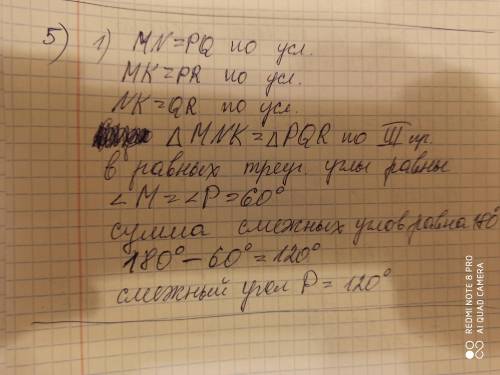 5) 1) MN=PQ по усл.
MK=PR по усл.
NK=QR по усл.
△MNK=△PQR по III пр.
в равных треуг. углы равны
∠M=∠P=60°
сумма смежных углов равна 180°
180°-60°=120°
смежный угол P=120°
REDMI NOTE 8 PRO
AI QUAD CAMERA